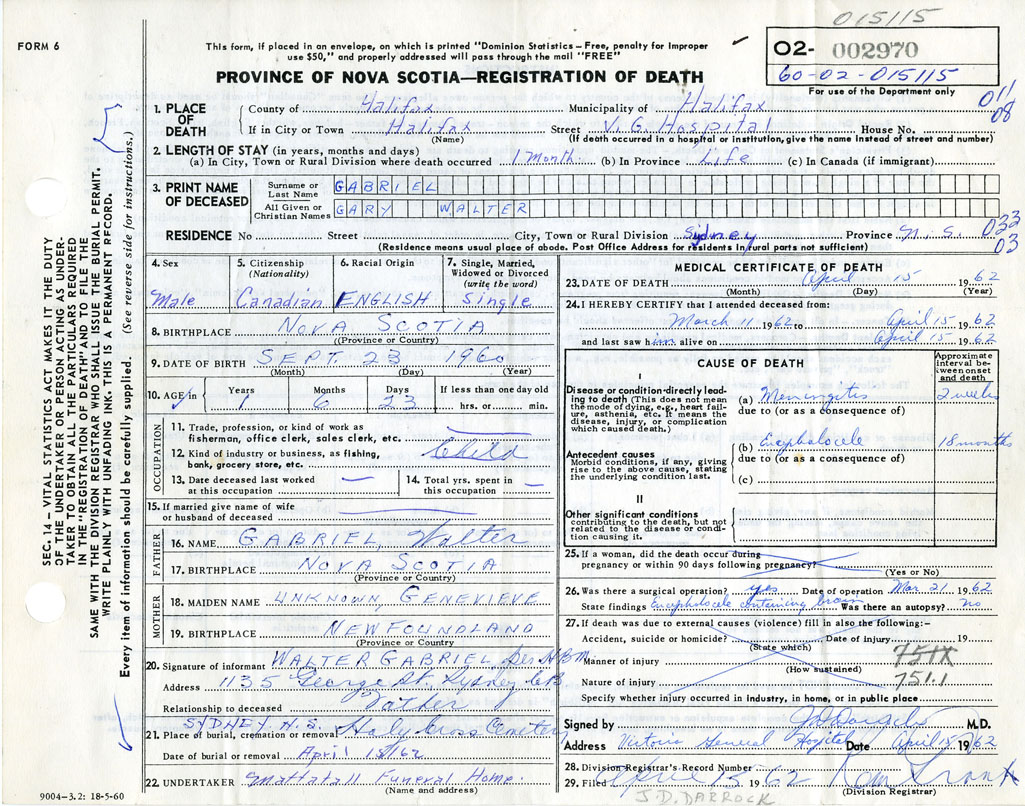 015115
FORM 6
This form, if placed in an envelope, on which is printed "Dominion Statistics – Free, penalty for improper
use $50," and properly addressed will pass through the mail "FREE"
02- 002970
60-02-015115
For use of the Department only
PROVINCE OF NOVA SCOTIA—REGISTRATION OF DEATH
011
08
1. PLACE OF DEATH
County of Halifax Municipality of Halifax
If in City or Town Halifax Street V. G. Hospital House No.
(Name) (If death occurred in a hospital or institution, give the name instead of street and number)
2. LENGTH OF STAY (in years, months and days)
(a) In City, Town or Rural Division where death occurred 1 Month (b) In Province Life (c) In Canada (if immigrant)
3. PRINT NAME OF DECEASED
Surname or Last Name GABRIEL
All Given or Christian Names GARY WALTER
RESIDENCE No Street City, Town or Rural Division Sydney Province N. S.
033
03
(Residence means usual place of abode. Post Office Address for residents in rural parts not sufficient)
4. Sex
Male
5. Citizenship
(Nationality)
Canadian
6. Racial Origin
ENGLISH
7. Single, Married,
Widowed or Divorced
(write the word)
Single
8. BIRTHPLACE NOVA SCOTIA
(Province or Country)
9. DATE OF BIRTH SEPT. 23 1960
(Month) (Day) (Year)
10. AGE in Years Months Days If less than one day old
1 6 23 hrs. or min.
OCCUPATION
11. Trade, profession, or kind of work as
fisherman, office clerk, sales clerk, etc.
12. Kind of industry or business, as fishing,
bank, grocery store, etc. Child
13. Date deceased last worked
at this occupation
14. Total yrs. spent in
this occupation
15. If married give name of wife
or husband of deceased
FATHER
16. NAME GABRIEL, Walter
17. BIRTHPLACE NOVA SCOTIA
(Province or Country)
MOTHER
18. MAIDEN NAME UNKNOWN, GENEVIEVE
19. BIRTHPLACE NEWFOUNDLAND
(Province or Country)
20. Signature of informant WALTER GABRIEL
Address 1135 George St. Sydney C.B
Relationship to deceased Father
SYDNEY, N.S.
21. Place of burial, cremation or removal Holy Cross Cemetery
Date of burial or removal April 18/62
22. UNDERTAKER Mattatall Funeral Home.
(Name and address)
9004—3.2: 18-5-60
MEDICAL CERTIFICATE OF DEATH
23. DATE OF DEATH April 15 1962
(Month) (Day) (Year)
24. I HEREBY CERTIFY that I attended deceased from:
March 11 1962 to April 15 1962
and last saw him alive on April 15 1962
CAUSE OF DEATH
Approximate
interval between
onset
and death
I
Disease or condition directly leading
to death (This does not mean
the mode of dying, e.g., heart failure,
asthenia, etc. It means the
disease, injury, or complication
which caused death.)
(a) Meningitis 2 weeks
due to (or as a consequence of)
(b) Encephalocele 18 months
due to (or as a consequence of)
(c)
Antecedent causes
Morbid conditions, if any, giving
rise to the above cause, stating
the underlying condition last.
II
Other significant conditions
contributing to the death, but not
related to the disease or condition
causing it.
25. If a woman, did the death occur during
pregnancy or within 90 days following pregnancy?
(Yes or No)
26. Was there a surgical operation? yes Date of operation Mar. 21 1962
State findings Encephalocele containing brain Was there an autopsy? no
27. If death was due to external causes (violence) fill in also the following:–
Accident, suicide or homicide? Date of injury 19
(State which)
Manner of injury
(How sustained)
Nature of injury 751.1
Specify whether injury occurred in industry, in home, or in public place
Signed by M.D.
Address Victoria General Hospital Date April 15 1962
28. Division Registrar's Record Number
29. Filed April 15 1962
(Division Registrar)
J. D. DARROCK
SEC. 14 – VITAL STATISTICS ACT MAKES IT THE DUTY
OF THE UNDERTAKER OR PERSON ACTING AS UNDERTAKER
TO OBTAIN ALL THE PARTICULARS REQUIRED
IN THE "REGISTRATION OF DEATH" AND TO FILE THE
SAME WITH THE DIVISION REGISTRAR WHO SHALL ISSUE THE BURIAL PERMIT.
WRITE PLAINLY WITH UNFADING INK. THIS IS A PERMANENT RECORD.
Every item of information should be carefully supplied. (See reverse side for instructions.)